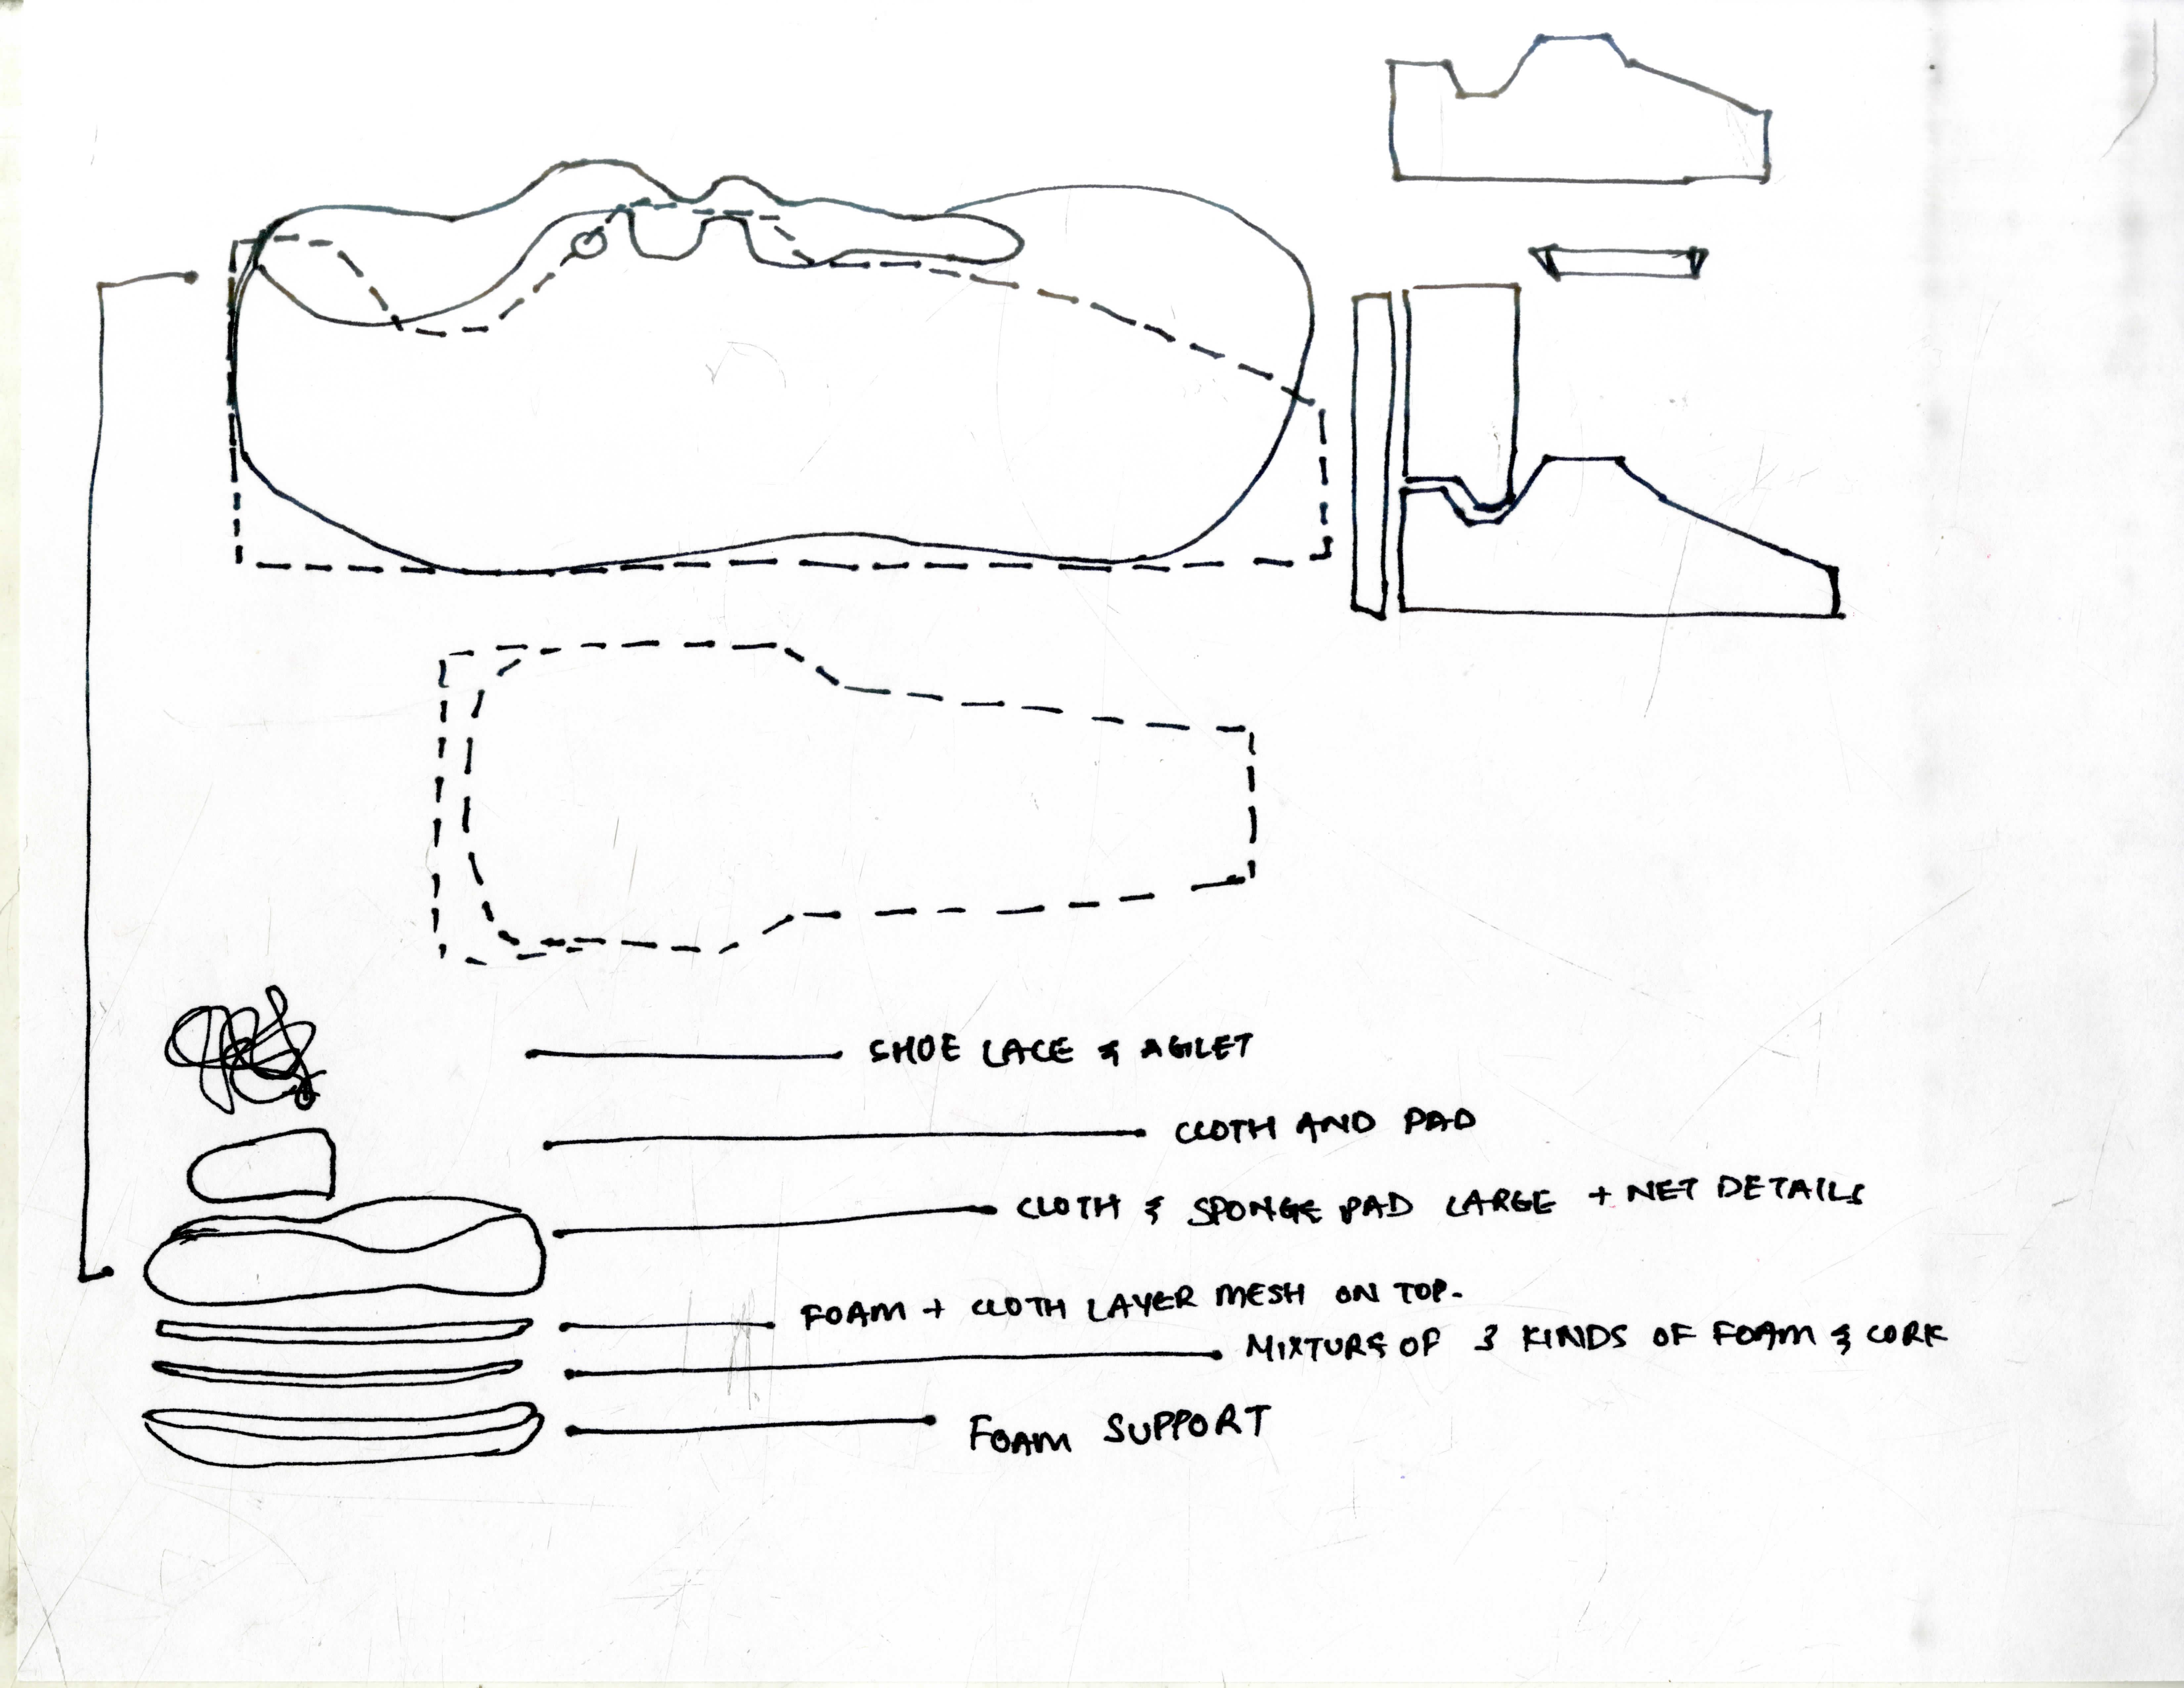 SHOE LACE & AGLET
CLOTH AND PAD
CLOTH & SPONGE PAD LARGE + NET DETAILS
FOAM + CLOTH LAYER MESH ON TOP.
MIXTURE OF 3 KINDS OF FOAM & CORK
FOAM SUPPORT